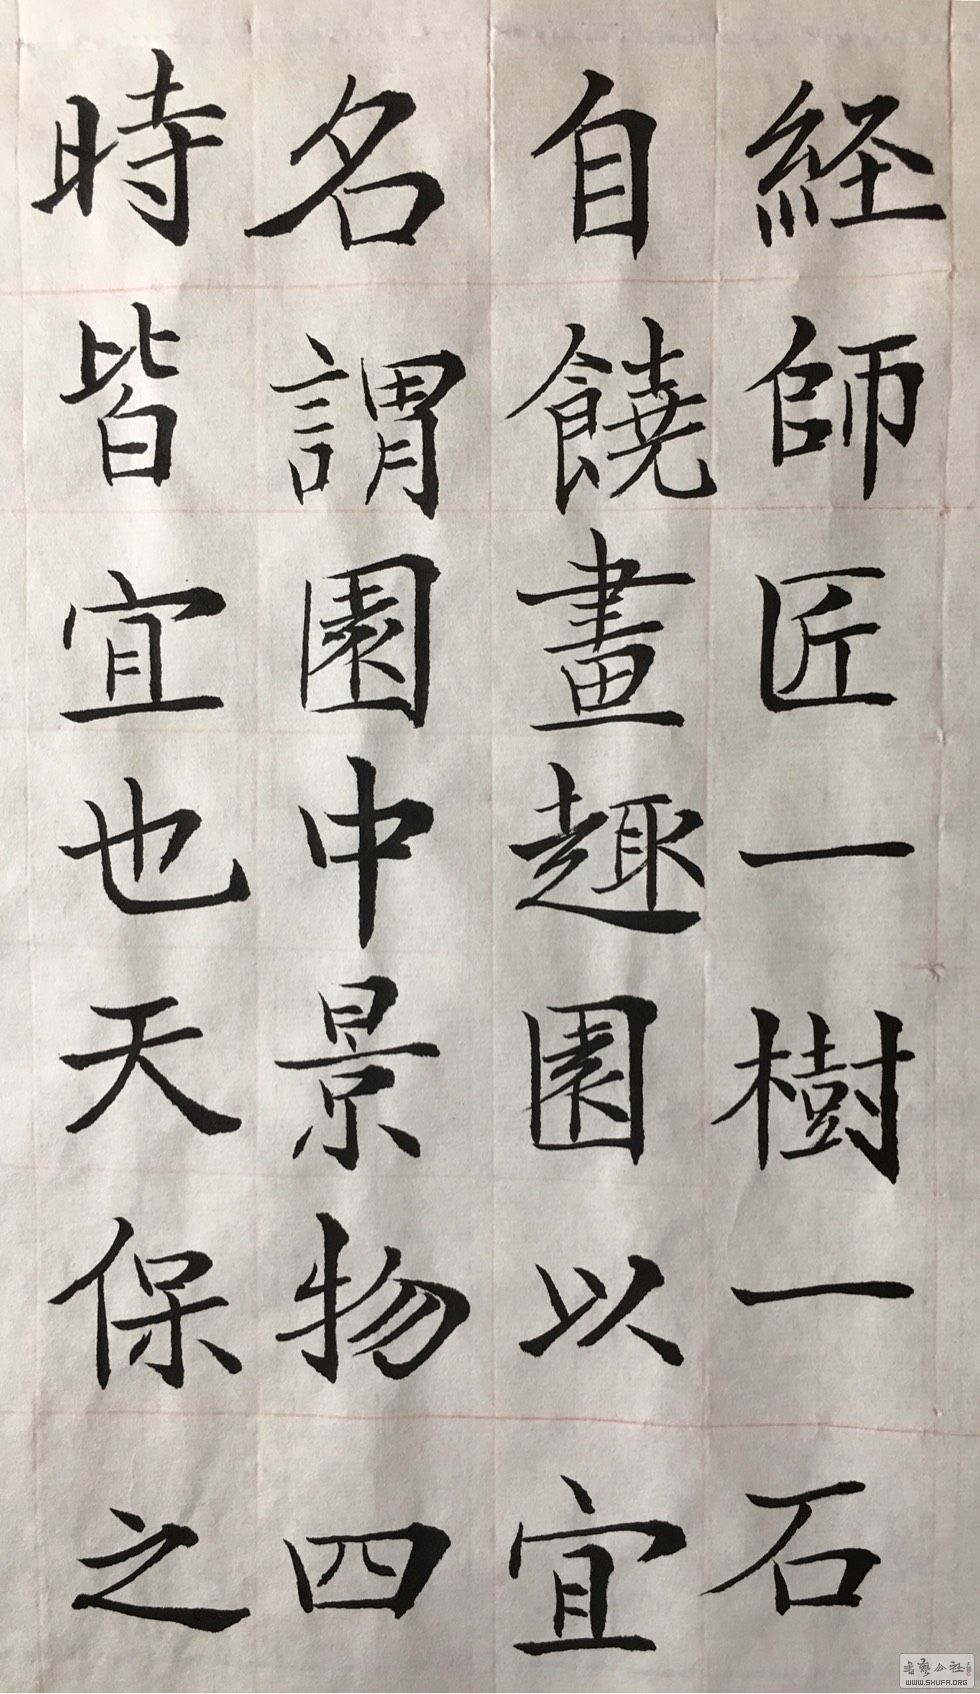 経師匠一樹一石
自饒畫趣園以宜
名謂園中景物四
時皆宜也天保之
WWW.SHUFA.ORG